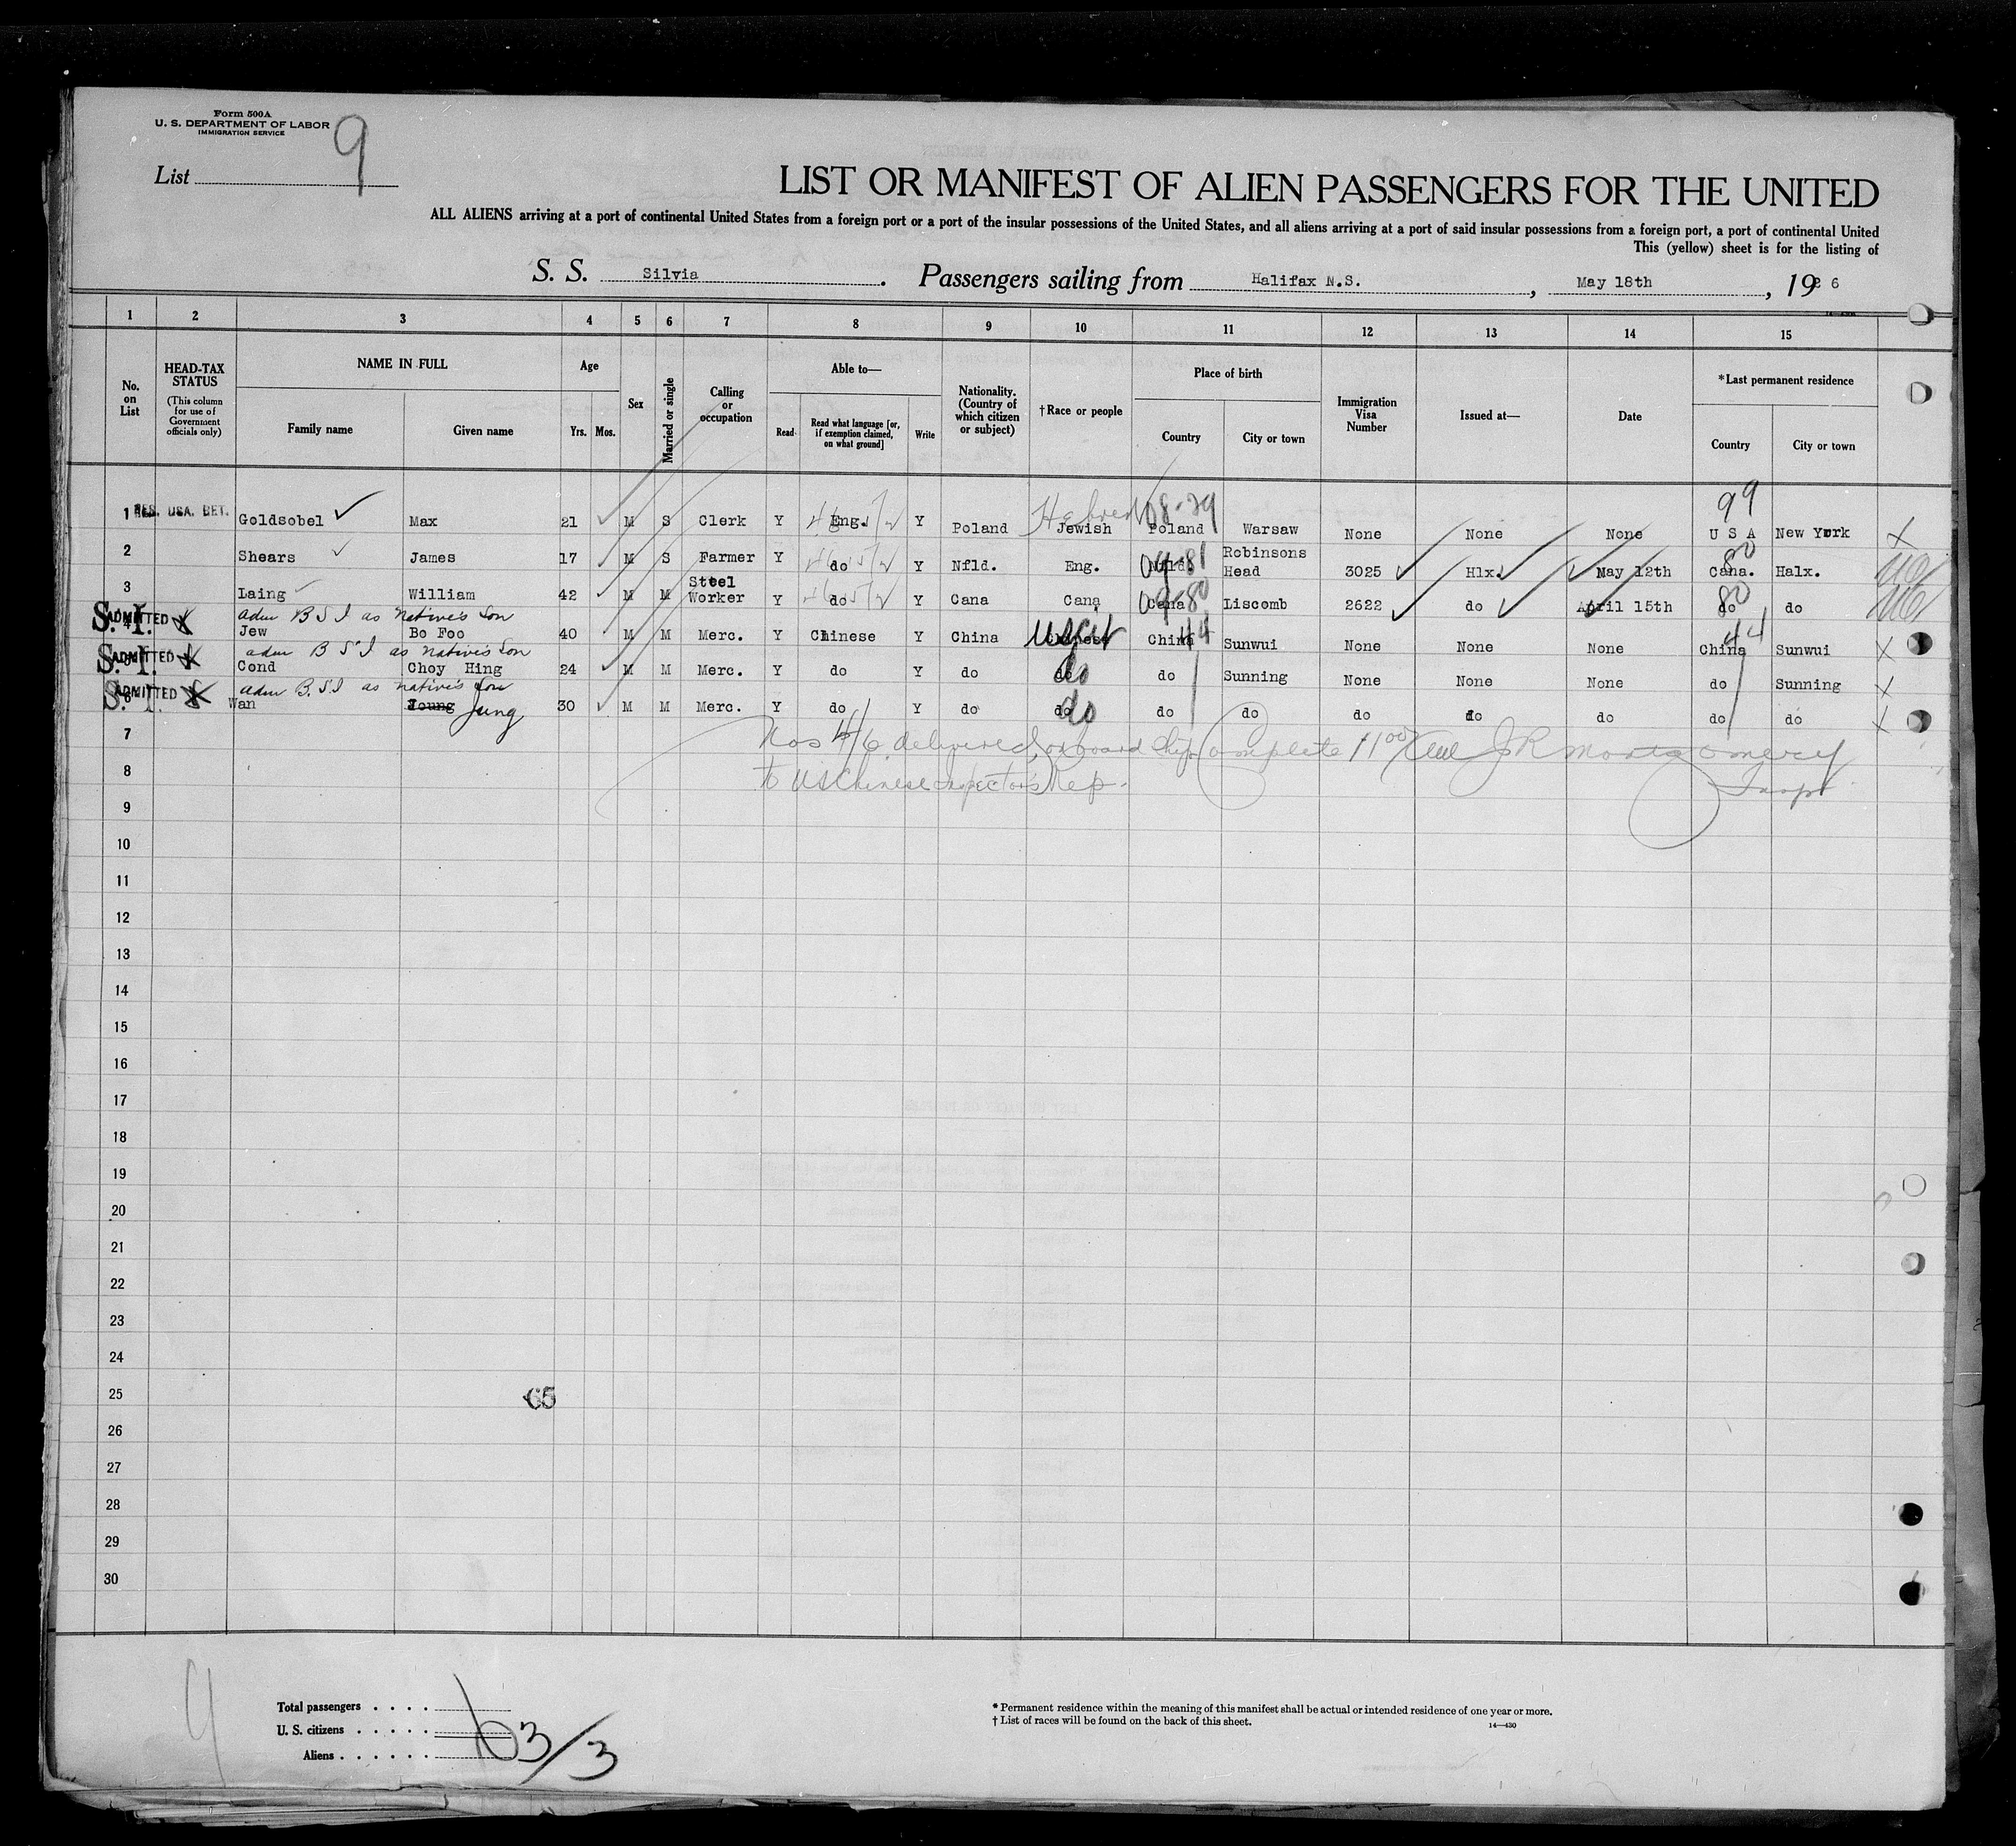 Form 500A
U. S. DEPARTMENT OF LABOR
IMMIGRATION SERVICE
9
List
LIST OR MANIFEST OF ALIEN PASSENGERS FOR THE UNITED
ALL ALIENS arriving at a port of continental United States from a foreign port or a port of the insular possessions of the United States, and all aliens arriving at a port of said insular possessions from a foreign port, a port of continental United
This (yellow) sheet is for the listing of
S. S. Silvia. Passengers sailing from Halifax N.S., May 18th, 1926
1 2 3 4 5 6 7 8 9 10 11 12 13 14 15
No. on List
HEAD-TAX STATUS (This column for use of Government officials only)
NAME IN FULL
Family name Given name
Age
Yrs. Mos.
Sex
Married or single
Calling or occupation
Able to—
Read Read what language [or, if exemption claimed, on what ground] Write
Nationality. (Country of which citizen or subject)
†Race or people
Place of birth
Country City or town
Immigration Visa Number
Issued at—
Date
*Last permanent residence
Country City or town
99
1 RES. USA. RET. Goldsobel Max 21 M S Clerk Y Eng. Y Poland Hebrew Jewish 08-29 Poland Warsaw None None None U S A New York X
2 Shears James 17 M S Farmer Y do Y Nfld. Eng. 04-81 Nfld. Robinsons Head 3025 Hlx. May 12th 80 Cana. Halx.
3 Laing William 42 M M Steel Worker Y do Y Cana Cana 09-80 Cana Liscomb 2622 do April 15th 80 do do
adm B S I as Native's Son
4 S. I. ADMITTED Jew Bo Foo 40 M M Merc. Y Chinese Y China US Cit Chinese China 44 Sunwui None None None 44 China Sunwui X
adm B S I as Native's Son
5 S. I. ADMITTED Cond Choy Hing 24 M M Merc. Y do Y do do do Sunning None None None do Sunning X
adm B. S I as Native's Son
6 S. I. ADMITTED Wan Young Jung 30 M M Merc. Y do Y do do do do do do do do do X
7 Nos 4/6 delivered onboard ship Complete 11 00 JR Montgomery
8 to US Chinese Inspector's Rep. Insp
9
10
11
12
13
14
15
16
17
18
19
20
21
22
23
24
25 65
26
27
28
29
30
9
Total passengers
U. S. citizens
Aliens
3/3
* Permanent residence within the meaning of this manifest shall be actual or intended residence of one year or more.
† List of races will be found on the back of this sheet.
14—430